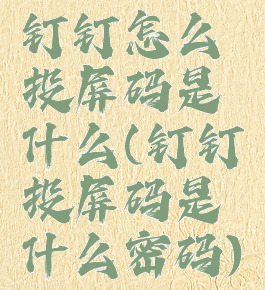 钉钉怎么
投屏码是
什么(钉钉
投屏码是
什么密码)